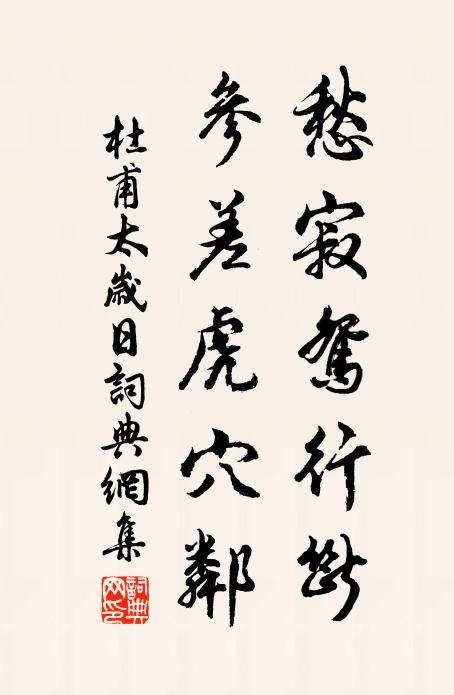 愁寂鴛行斷
參差虎穴鄰
杜甫太歲日詞典網集
詞典网印